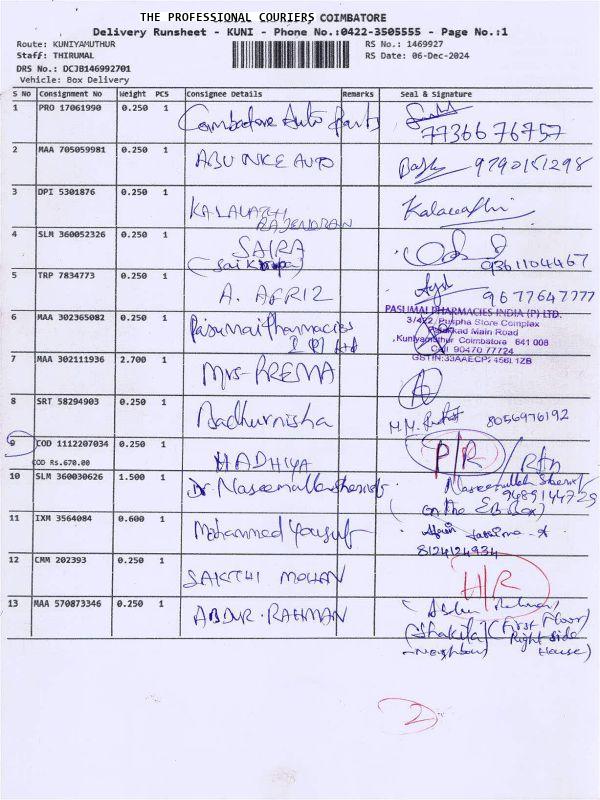 THE PROFESSIONAL COURIERS COIMBATORE
Delivery Runsheet - KUNI - Phone No.:0422-3505555 - Page No.:1
Route: KUNIYAMUTHUR
RS No.: 1469927
Staff: THIRUMAL
RS Date: 06-Dec-2024
DRS No.: DCJB146992701
Vehicle: Box Delivery
S No Consignment No Weight PCS Consignee Details Remarks Seal & Signature
1 PRO 17061990 0.250 1 Coimbatore Auto Parts
77366 76757
2 MAA 705059981 0.250 1 ABU NKE AUTO 9790151298
3 DPI 5301876 0.250 1 KALAVATHI Kalavathi
RAJENDRAN
4 SLM 360052326 0.250 1 SAIRA
9361104467
5 TRP 7834773 0.250 1 A. AFRIZ
9677647777
6 MAA 302365082 0.250 1 Paisumai Pharmacies
PASUMAI PHARMACIES INDIA (P) LTD.
3/422, Puspha Store Complex
Palakkad Main Road
Kuniyamuthur Coimbatore 641 008
Cell 90470 77724
GSTIN:33AAECP2456L1ZB
7 MAA 302111936 2.700 1 Mrs-PREMA
8 SRT 58294903 0.250 1 Aadhurnisha
8056976192
9 COD 1112207034 0.250 1 HADHIYA P/R / Rtn
COD Rs.670.00
10 SLM 360030626 1.500 1 Dr. Naseemullasheriff
9489144729
(on the EB Box)
11 IXM 3564084 0.600 1 Mohammed Yousuf
8124124934
12 CMM 202393 0.250 1 SAKTHI MOHAN H/R
13 MAA 570873346 0.250 1 ABDUR.RAHMAN
(Shakila (First Floor)
-Neighbour) Right side House)
2